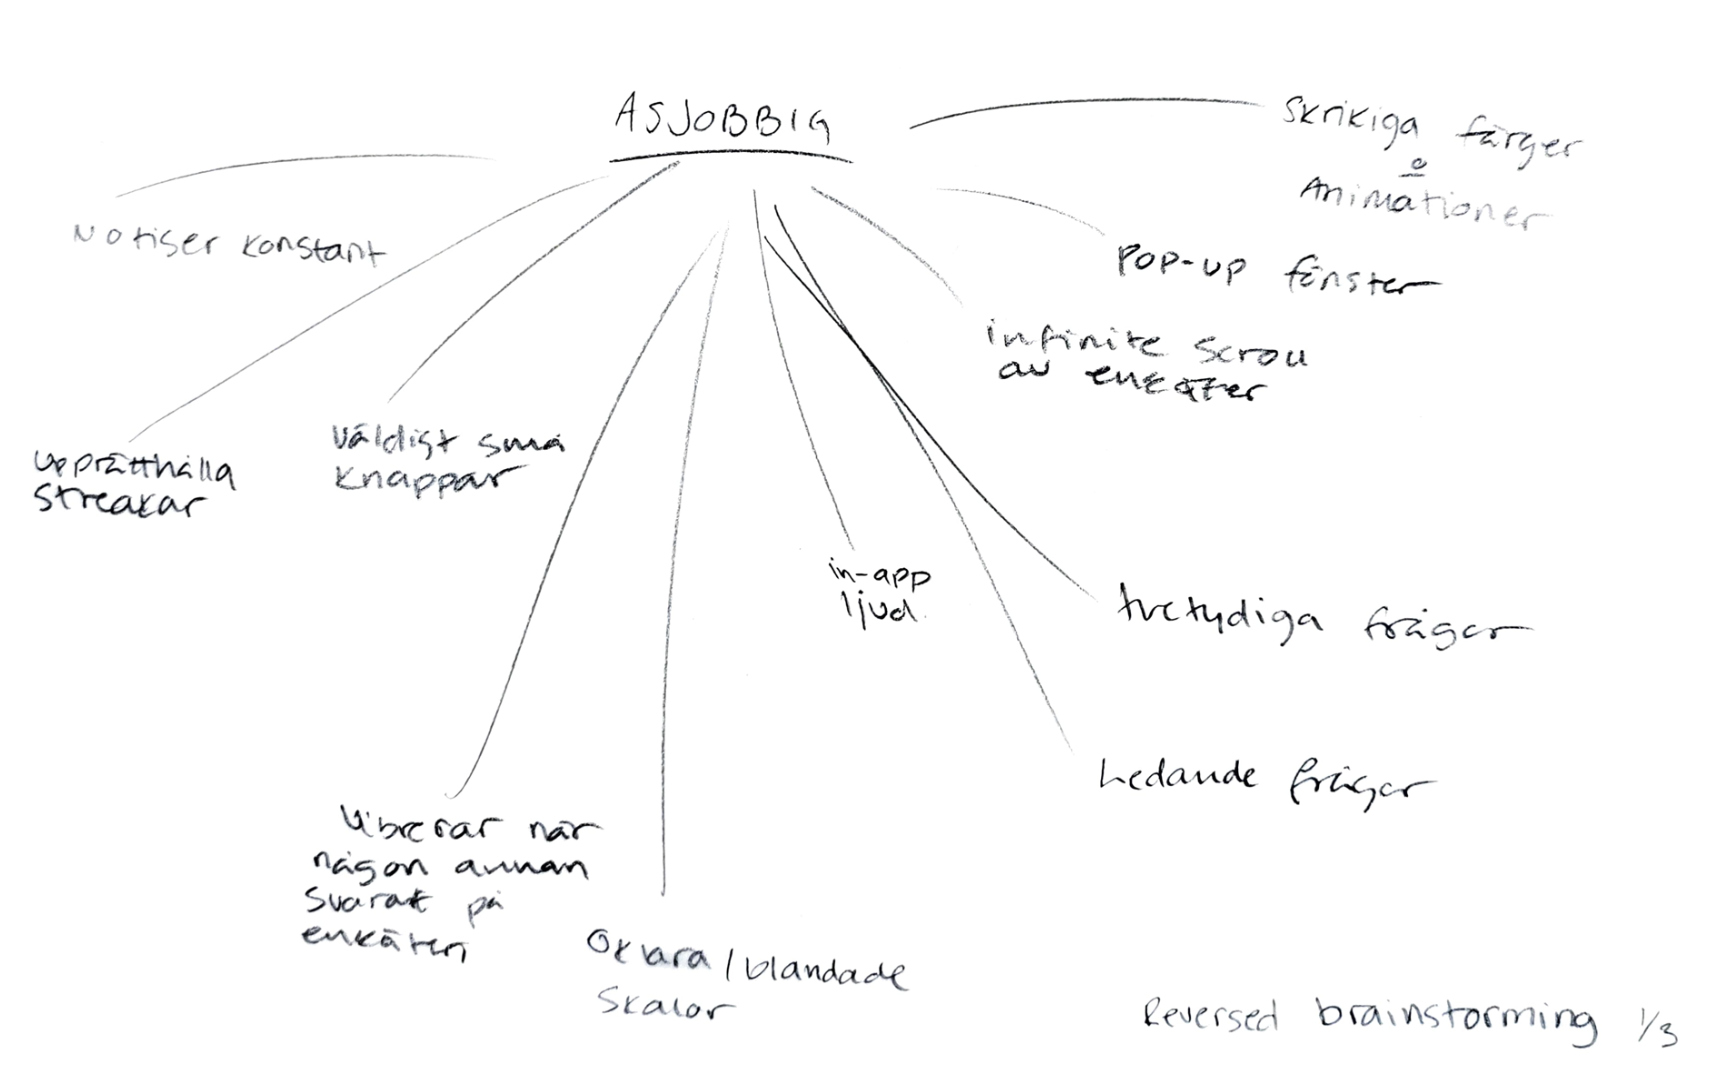 ASJOBBIG
Skrikiga färger
&
Animationer
Notiser konstant
Pop-up fönster
infinite scroll
av enkäter
Väldigt små
knappar
upprätthålla
streakar
in-app
ljud.
tvetydiga frågor
Ledande frågor
Vibrerar när
någon annan
svarat på
enkäten
Oklara / blandade
skalor
Reversed brainstorming 1/3